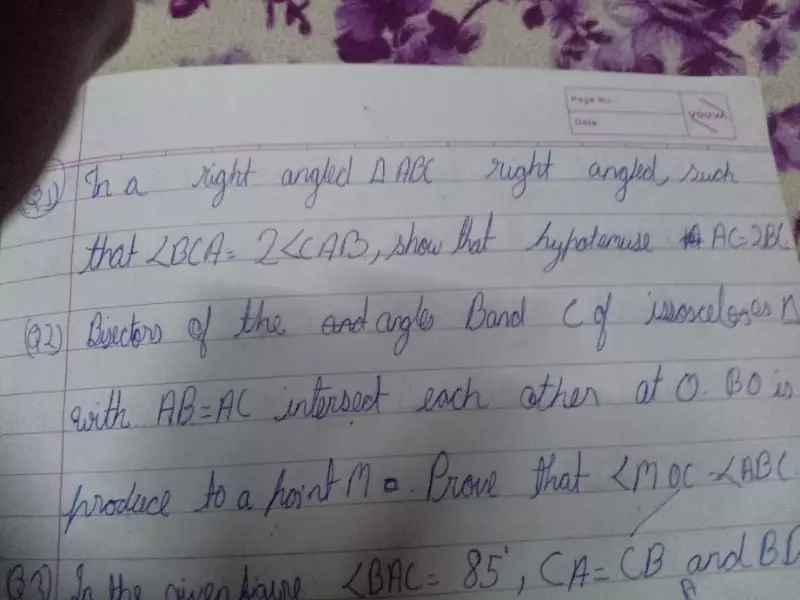 Page No.
Date
youva
Q1) In a right angled Δ ABC right angled, such
that ∠BCA = 2∠CAB, show that hypotenuse AC=2BC
Q2) Bisectors of the angles B and C of issosceloses Δ
with AB=AC intersect each other at O. BO is
produce to a point M. Prove that ∠MOC = ∠ABC
Q3) In the given figure ∠BAC = 85°, CA = CB and BD
A